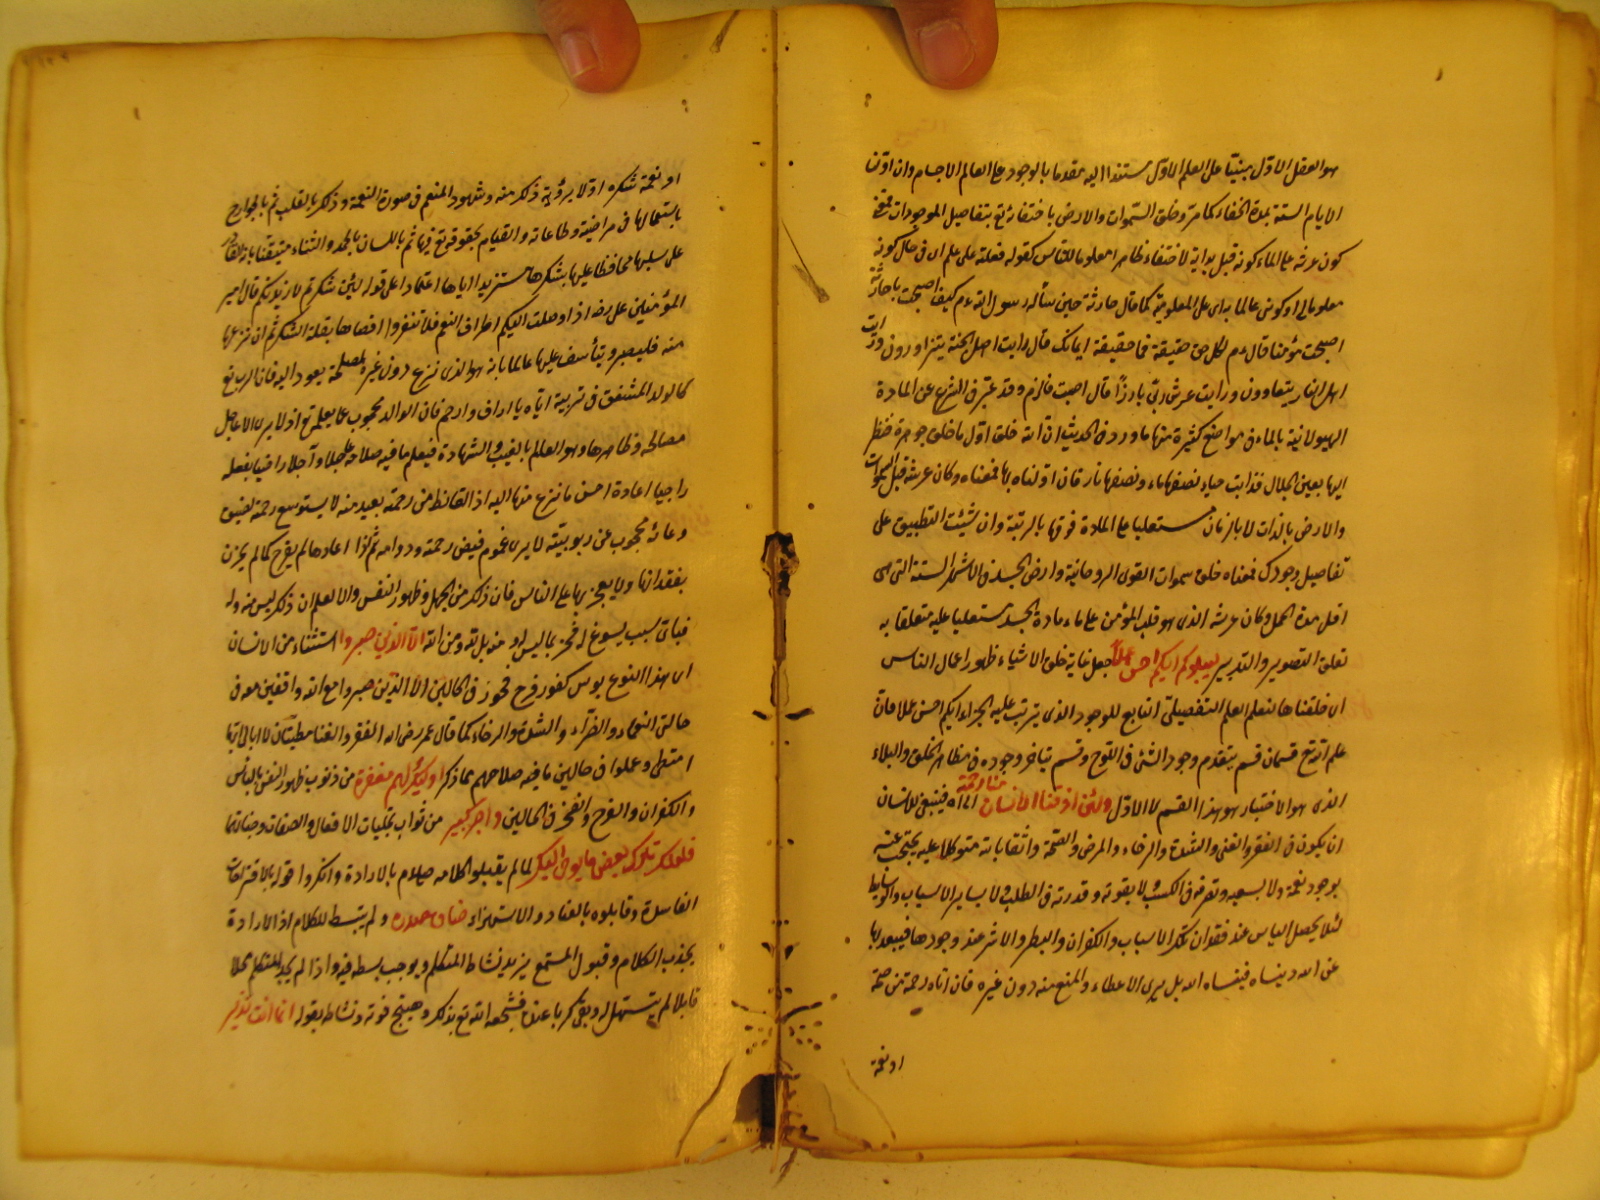 هو العقل الاول مبنيا على العلم الاول مستندا اليه مقدما بالوجود على العالم الاجسام وان اولت
الايام الستة بمدة الخفاء كما مر وخلق السموات والارض باختفائه تع بتفاصيل الموجودات فمعنى
كون عرشه على الماء كونه قبل بداية الاختفاء ظاهرا معلوما للناس كقوله فعلته على علم اى فى حال كونه
معلوما لى او كونى عالما به اى على المعلومية كما قال حارثة حين سأله رسول الله عم كيف اصبحت يا حارثة
اصبحت مؤمنا قال عم لكل حق حقيقة فما حقيقة ايمانك قال رايت اهل الجنة يتزاورون ورايت
اهل النار يتعاوون ورايت عرش ربى بارزا قال اصبت فالزم وقد عبر فى الشرع عن المادة
الهيولانية بالماء فى مواضع كثيرة منها ما ورد فى الحديث ان الله خلق اول ما خلق جوهرة فنظر
اليها بعين الجلال فذابت حياء نصفها ماء ونصفها نار فان اولناه بها فمعناه وكان عرشه قبل السموات
والارض بالذات لا بالزمان مستعليا على المادة فوقها بالرتبة وان شئت التطبيق على
تفاصيل وجودك فمعناه خلق سموات القوى الروحانية وارض الجسد فى الاشهر الستة التى هى
اقل مدة الحمل وكان عرشه الذى هو قلب المؤمن على ماء مادة الجسد مستعليا عليه متعلقا به
تعلق التصوير والتدبير ليبلوكم ايكم احسن عملا جعل غاية خلق الاشياء ظهور اعمال الناس
اى خلقناها لنعلم العلم التفصيلى التابع للوجود الذى يترتب عليه الجزاء ايكم احسن عملا فان
علم الله تع قسمان قسم يتقدم وجود الشئ فى اللوح وقسم يتاخر وجوده فى مظاهر الخلق والبلاء
الذى هو الاختبار هو هذا القسم لا الاول ولئن اذقنا الانسان منا رحمة الى آه فينبغى للانسان
ان يكون فى الفقر والغنى والشدة والرخاء والمرض والصحة واثقا بالله متوكلا عليه لا يحتجب عنه
بوجود نعمة ولا بسعيه وتصرفه فى الكسب ولا بقوته وقدرته فى الطلب ولا بساير الاسباب والوسايط
لئلا يحصل الياس عند فقدان تلك الاسباب والكفران والبطر والاشر عند وجودها فيبعد بها
عن الله وينساه فينساه الله بل يرى الاعطاء والمنع منه دون غيره فان اتاه رحمة من صحة
او نعمة
او نعمة شكره اولا برؤية ذلك منه وشهود المنعم فى صورة النعمة وذلك بالقلب ثم بالجوارح
باستعمالها فى مراضيه وطاعاته والقيام بحقوقه تع فيها ثم باللسان بالحمد والثناء متيقنا بانه القادر
على سلبها محافظا عليها بشكرها مستزيدا اياها اعتمادا على قوله لئن شكرتم لازيدنكم قال امير
المؤمنين على رضه اذا وصلت اليكم اطراف النعم فلا تنفروا اقصاها بقلة الشكر ثم ان نزعها
منه فليصبر ويتأسف عليها عالما بانه هو الذى نزع دون غيره لمصلحة يعود اليه فان الرب تع
كالوالد المشفق فى تربيته اياه بل ارأف وارحم فان الوالد محجوب عما يعلم تع اذ لا يرى الا عاجل
مصالحه وظاهرها وهو العالم بالغيب والشهادة فيعلم ما فيه صلاحه عاجلا وآجلا راضيا بفعله
راجيا اعادة احسن ما نزع منها اليه اذ القانط من رحمته بعيد منه لا يستوسع رحمته لضيق
وعائه محجوب عن ربوبيته لا يرى عموم فيض رحمته ودوامه ثم اذا اعادها لم يفرح كما لم يحزن
بفقدانها ولا يفخر بها على الناس فان ذلك من الجهل وظهور النفس والا لعلم ان ذلك ليس منه وله
فباى سبب يسوغ له فخر بما ليس له ومنه بل لله ومن الله الا الذين صبروا استثناء من الانسان
اى هذا النوع يؤس كفور فرح فخور فى الحالين الا الذين صبروا مع الله واقفين معه فى
حالتى النعماء والضراء والشدة والرخاء كما قال عمر رضى الله الفقر والغنا مطيتان لا ابالى ايهما
امتطى وعملوا فى حالين ما فيه صلاحهم بما ذكر اولئك لهم مغفرة من ذنوب ظهور النفس باليأس
والكفران والفرح والفخر فى الحالين واجر كبير من ثواب تجليات الافعال والصفات وجناتها
فلعلك تارك بعض ما يوحى اليك لما لم يقبلوا كلامه صلعم بالارادة وانكروا قوله بالاقتراحات
الفاسدة وقابلوه بالعناد والاستهزاء ضاق صدره ولم يتبسط للكلام اذ الارادة
يجذب الكلام وقبول المستمع يزيد نشاط المتكلم ويوجب بسطه فيه واذا لم يجد المتكلم محلا
قابلا لم يتسهل له وبقى كربا عنده فشجعه الله تع بذلك وهيج قوته ونشاطه بقوله انما انت نذير